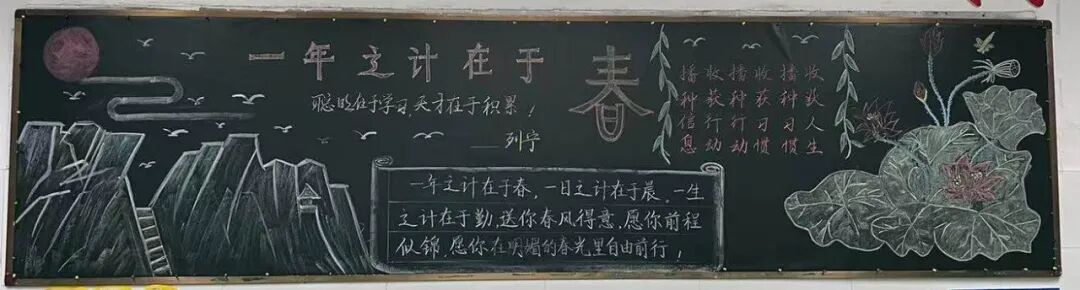 一年之计在于春
聪明在于学习,天才在于积累！
——列宁
播种信息
收获行动
播种行动
收获习惯
播种习惯
收获人生
一年之计在于春，一日之计在于晨。一生
之计在于勤，送你春风得意，愿你前程
似锦，愿你在明媚的春光里自由前行！